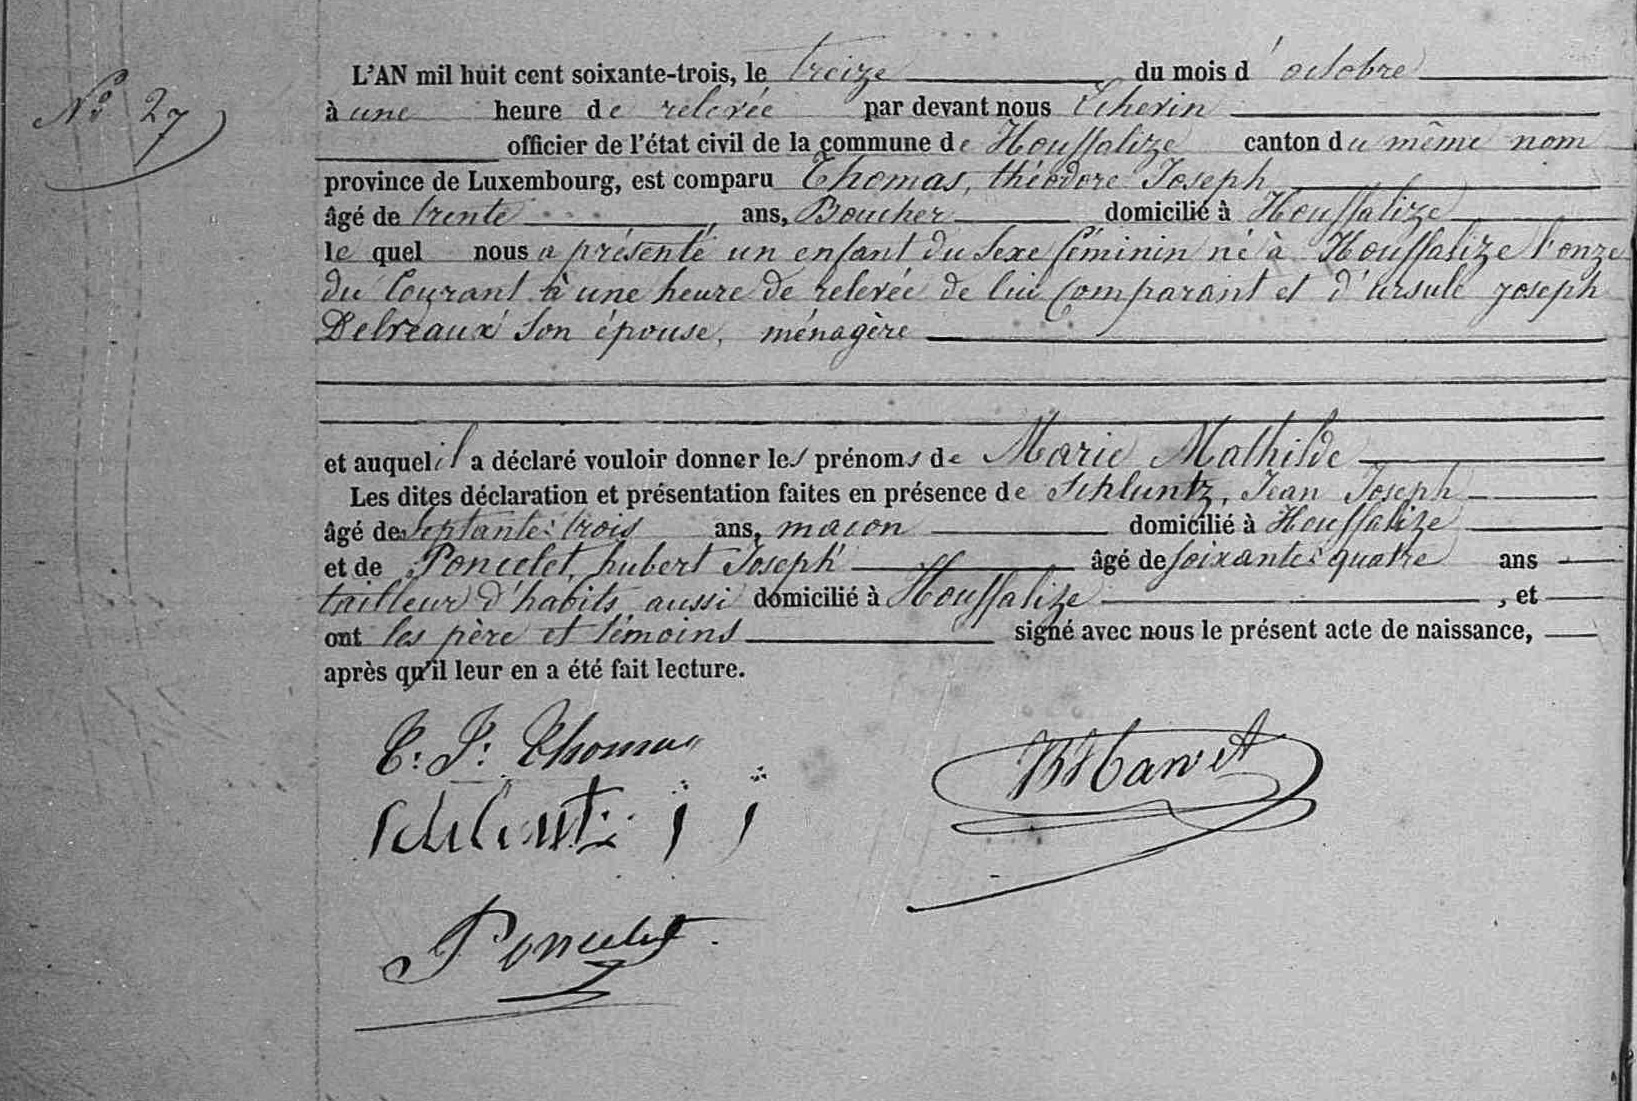 No 27
L'AN mil huit cent soixante-trois, le treize du mois d'octobre
à une heure de relevée par devant nous
officier de l'état civil de la commune de Houffalize canton du même nom
province de Luxembourg, est comparu Thomas, théodore Joseph
âgé de trente ans, Boucher domicilié à Houffalize
le quel nous a présenté un enfant du sexe féminin né à Houffalize l'onze
du Courant à une heure de relevée de lui Comparant et d'ursule joseph
Delveaux son épouse, ménagère
et auquel il a déclaré vouloir donner les prénoms de Marie Mathilde
Les dites déclaration et présentation faites en présence de Schluntz, Jean Joseph
âgé de septante-trois ans, macon domicilié à Houffalize
et de Poncelet, hubert Joseph âgé de soixante-quatre ans
tailleur d'habits, aussi domicilié à Houffalize, et
ont les père et témoins signé avec nous le présent acte de naissance,
après qu'il leur en a été fait lecture.
T: J: Thomas
Schluntz j j
Poncelet